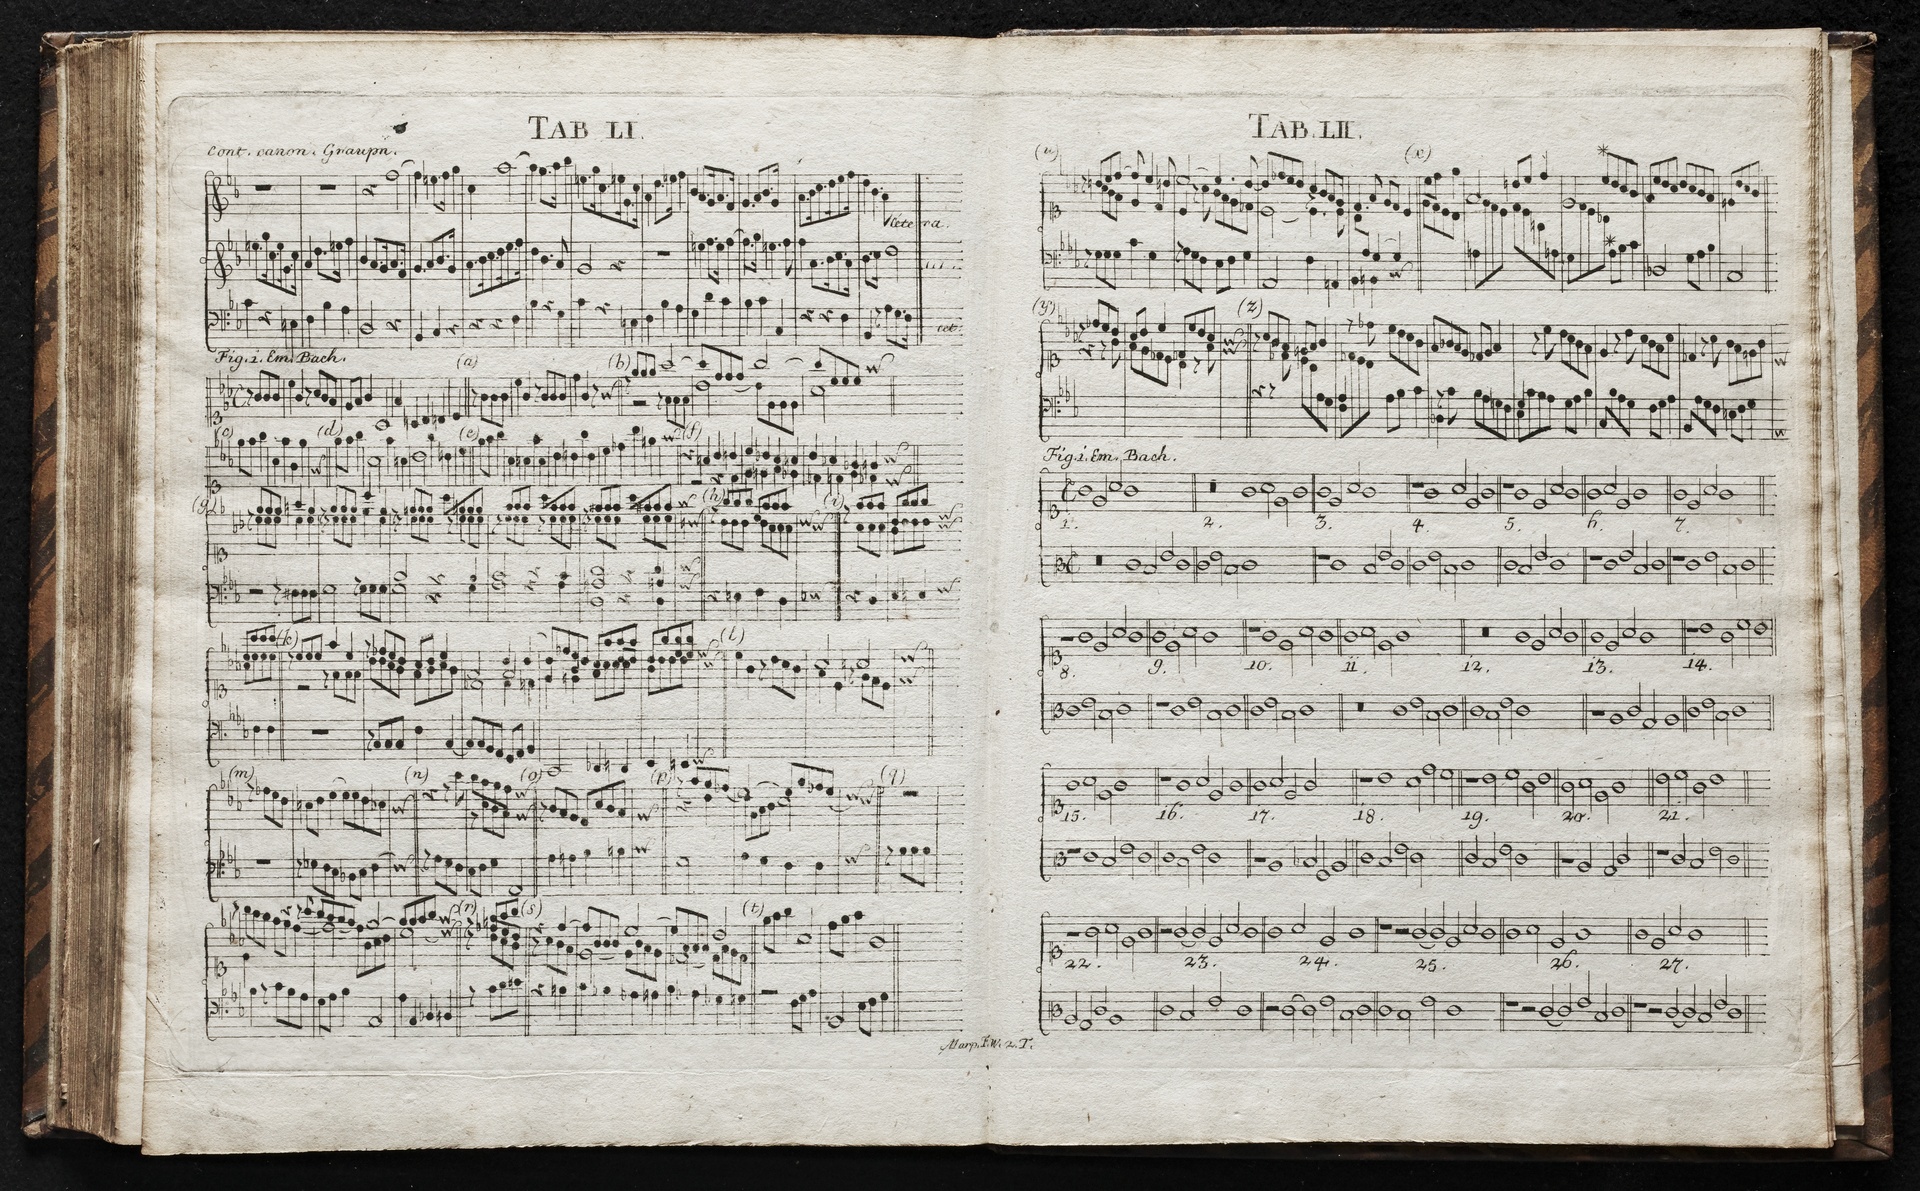 TAB LI.
Cont. canon. Graupn.
&c cetera.
cet:
Fig. 1. Em. Bach.
(a)
(b)
(c)
(d)
(e)
(f)
(g)
(h)
(i)
(k)
(l)
(m)
(n)
(o)
(p)
(q)
(r)
(s)
(t)
TAB. LII.
(u)
(x)
(y)
(z)
Fig. 1. Em. Bach.
1. 2. 3. 4. 5. 6. 7.
8. 9. 10. 11. 12. 13. 14.
15. 16. 17. 18. 19. 20. 21.
22. 23. 24. 25. 26. 27.
Marp. F. W. 2. T.